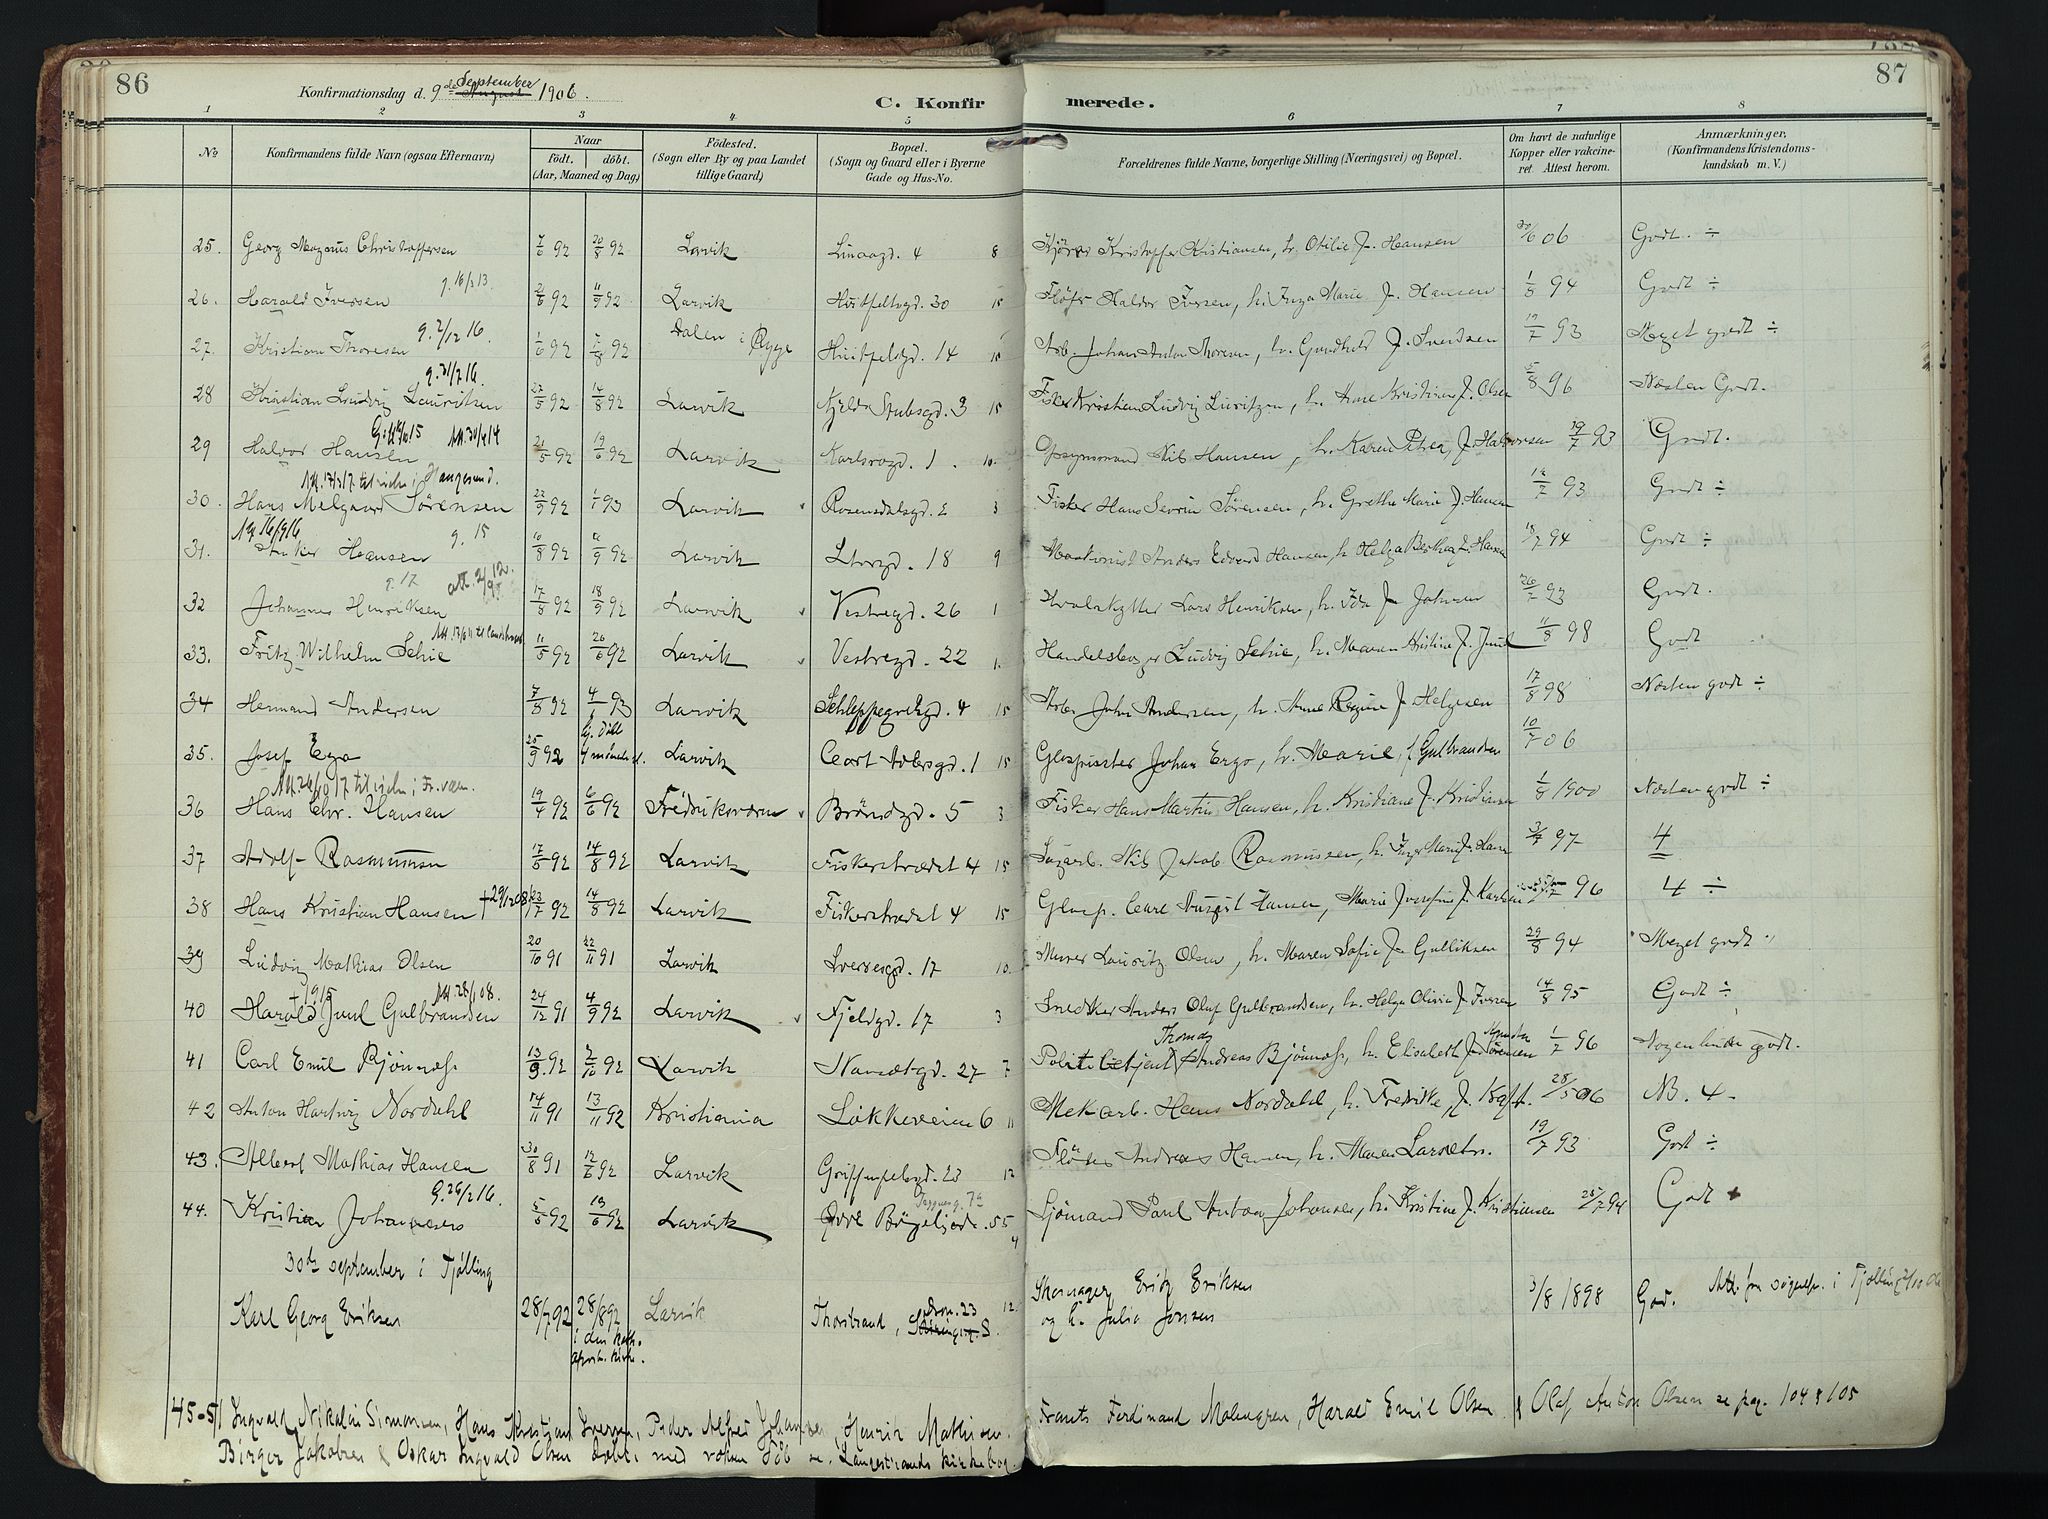 86
87
Konfirmationsdag d. 9de September 1906.
C. Konfirmerede.
1 2 3 4 5 6 7 8
No
Konfirmandens fulde Navn (ogsaa Efternavn)
Naar
født. døbt.
(Aar, Maaned og Dag)
Fødested.
(Sogn eller By og paa Landet
tillige Gaard)
Bopæl.
(Sogn og Gaard eller i Byerne
Gade og Hus-No.
Forældrenes fulde Navne, borgerlige Stilling (Næringsvei) og Bopæl.
Om havt de naturlige
Kopper eller vakcine-
ret. Attest herom.
Anmærkninger.
(Konfirmandens Kristendoms-
kundskab m. V.)
25. Georg Magnus Christoffersen 7/6 92 20/8 92 Larvik 4 8 Kristoffer Kristiansen, h. Otilie f. Hansen 20/6 06 Godt. ÷
g. 16/3 13
26. Harald Iversen 2/6 92 11/9 92 Larvik Huitfeltsgd. 30 15 Haldor Iversen, h. Inga Marie f. Hansen 1/8 94 Godt ÷
g. 2/12 16
27. Kristian Thoresen 1/6 92 7/8 92 Dalen i Rygge Huitfelsgd. 14 15 Arb. Johan Anton Thoresen, h. Gundhild f. Svendsen 19/7 93 Meget godt ÷
g. 31/7 16.
28 Kristian Ludvig Lauritsen 27/5 92 14/8 92 Larvik Kjeld Stubsgd. 3 15 Fisker Kristian Ludvig Luritzen, h. Ane Kristine f. Olsen 5/8 96 Næsten Godt.
29 Halvor Hansen 21/5 92 19/6 92 Larvik Karlsrogd. 1. 10. Opsynsmand Nils Hansen, h. Karen Petrea f. Halvorsen 19/7 93 Godt.
Att. 17/3 17 til i Haugesund.
30. Hans Melgaard Sørensen 22/9 92 93 Larvik Rosensdalsgd. 2 3 Fisker Hans Severin Sørensen, h. Grethe Marie f. Hansen 12/7 93 Godt ÷
g. 15
31. Anker Hansen 10/8 92 9 92 Larvik Storgd. 18 9 Maskinist Anders Edvard Hansen, h. Helga Berthea f. Hansen 18/7 94 Godt ÷
g. 17
32 Johannes Henriksen 17/8 92 18/9 92 Larvik Vestregd. 26 1 Hvalskytter Lars Henriksen, h. Ida f. Johnsen 26/7 93 Godt.
33. Fritz Wilhelm Schie 11/5 92 26/6 92 Larvik Vestregd. 22 1. Handelsborger Ludvig Schie, h. Maren Kristine f. Juul 11/8 98 Godt
34 Hermand Andersen 7/8 92 4 93 Larvik Schleppegrelsgd. 4 15 Arb. John Andersen, h. Anne Regine f. Helgesen 17/8 98 Næsten godt ÷
35. Josef Ergo 25/9 92 Larvik Cort Adlersgd. 1 15 Glaspuster Johan Ergo, h. Marie, f. Gulbrandsen 10/7 06
36 Hans Chr. Hansen 19/4 92 6/6 92 Fredriksværn Brøndgd. 5 3 Fisker Hans Martin Hansen, h. Kristiane f. Kristiansen 1/8 1900 Næsten godt ÷
37 Adolf Rasmussen 17/5 92 14/8 92 Larvik Fiskerstrædet 4 15 Sagarb. Nils Jakob Rasmussen, h. Inger Marie f. Hansen 97 4
38 Hans Kristian Hansen 23/7 92 14/8 92 Larvik Fiskerstrædet 4 15 Glasp. Carl August Hansen, Marie Josefine f. 96 4 ÷
39 Ludvig Mathias Olsen 20/10 91 22/11 91 Larvik Sverresgd. 17 10. Murer Lauritz Olsen, h. Maren Sofie f. Gulliksen 29/8 94 Meget godt
† 1915
40 Harald Juul Gulbrandsen 24/12 91 4/9 92 Larvik Fjeldgd. 17 3 Snedker Anders Oluf Gulbrandsen, h. Helga Olivia f. Iversen 14/8 95 Godt ÷
Thomas
41 Carl Emil Bjønness 13/3 92 2/10 92 Larvik Nansetgd. 27 7 Politibetjent Andreas Bjønness, h. Elisabeth f. Sørensen 1/7 96 Nogenlunde godt.
42 Anton Hartvig Nordahl 14/11 91 13/11 92 Kristiania Løkkeveien 6 11 Mek. arb. Hans Nordahl, h. Fredrikke, f. Kraft. 28/5 06 NB. 4
43. Albert Mathias Hansen 30/8 91 12/6 92 Larvik Griffenfelsgd. 23 12 Andreas Hansen, h. Maren 19/7 93 Godt ÷
g. 26/2 16.
44. Kristian Johannesen 5/5 92 19/6 92 Larvik Øvre Bøgeljordet 55 4 Sjømand Paul Anton Johansen, h. Kristine f. Kristiansen 25/7 94 Godt +
30te september i Tjølling
Karl Georg Eriksen 28/7 92 28/8 92 Larvik Thorstrand, 12. Skomager Eritz Eriksen 3/8 1898 God. Att. fra sognepr. i Tjølling
i den kath.
apost. kirke.
og h. Julia Jonsen
45-51 Ingvald Nikolai Simonsen, Hans Kristian Iversen, Peder Alfred Johansen, Henrik Mathisen, Frants Ferdinand Malmgren, Harald Emil Olsen & Olaf Anton Olsen se pag. 104 & 105
Birger Jakobsen & Oskar Ingvald Olsen døbt med voksen dåb se Langestrands kirkebog.